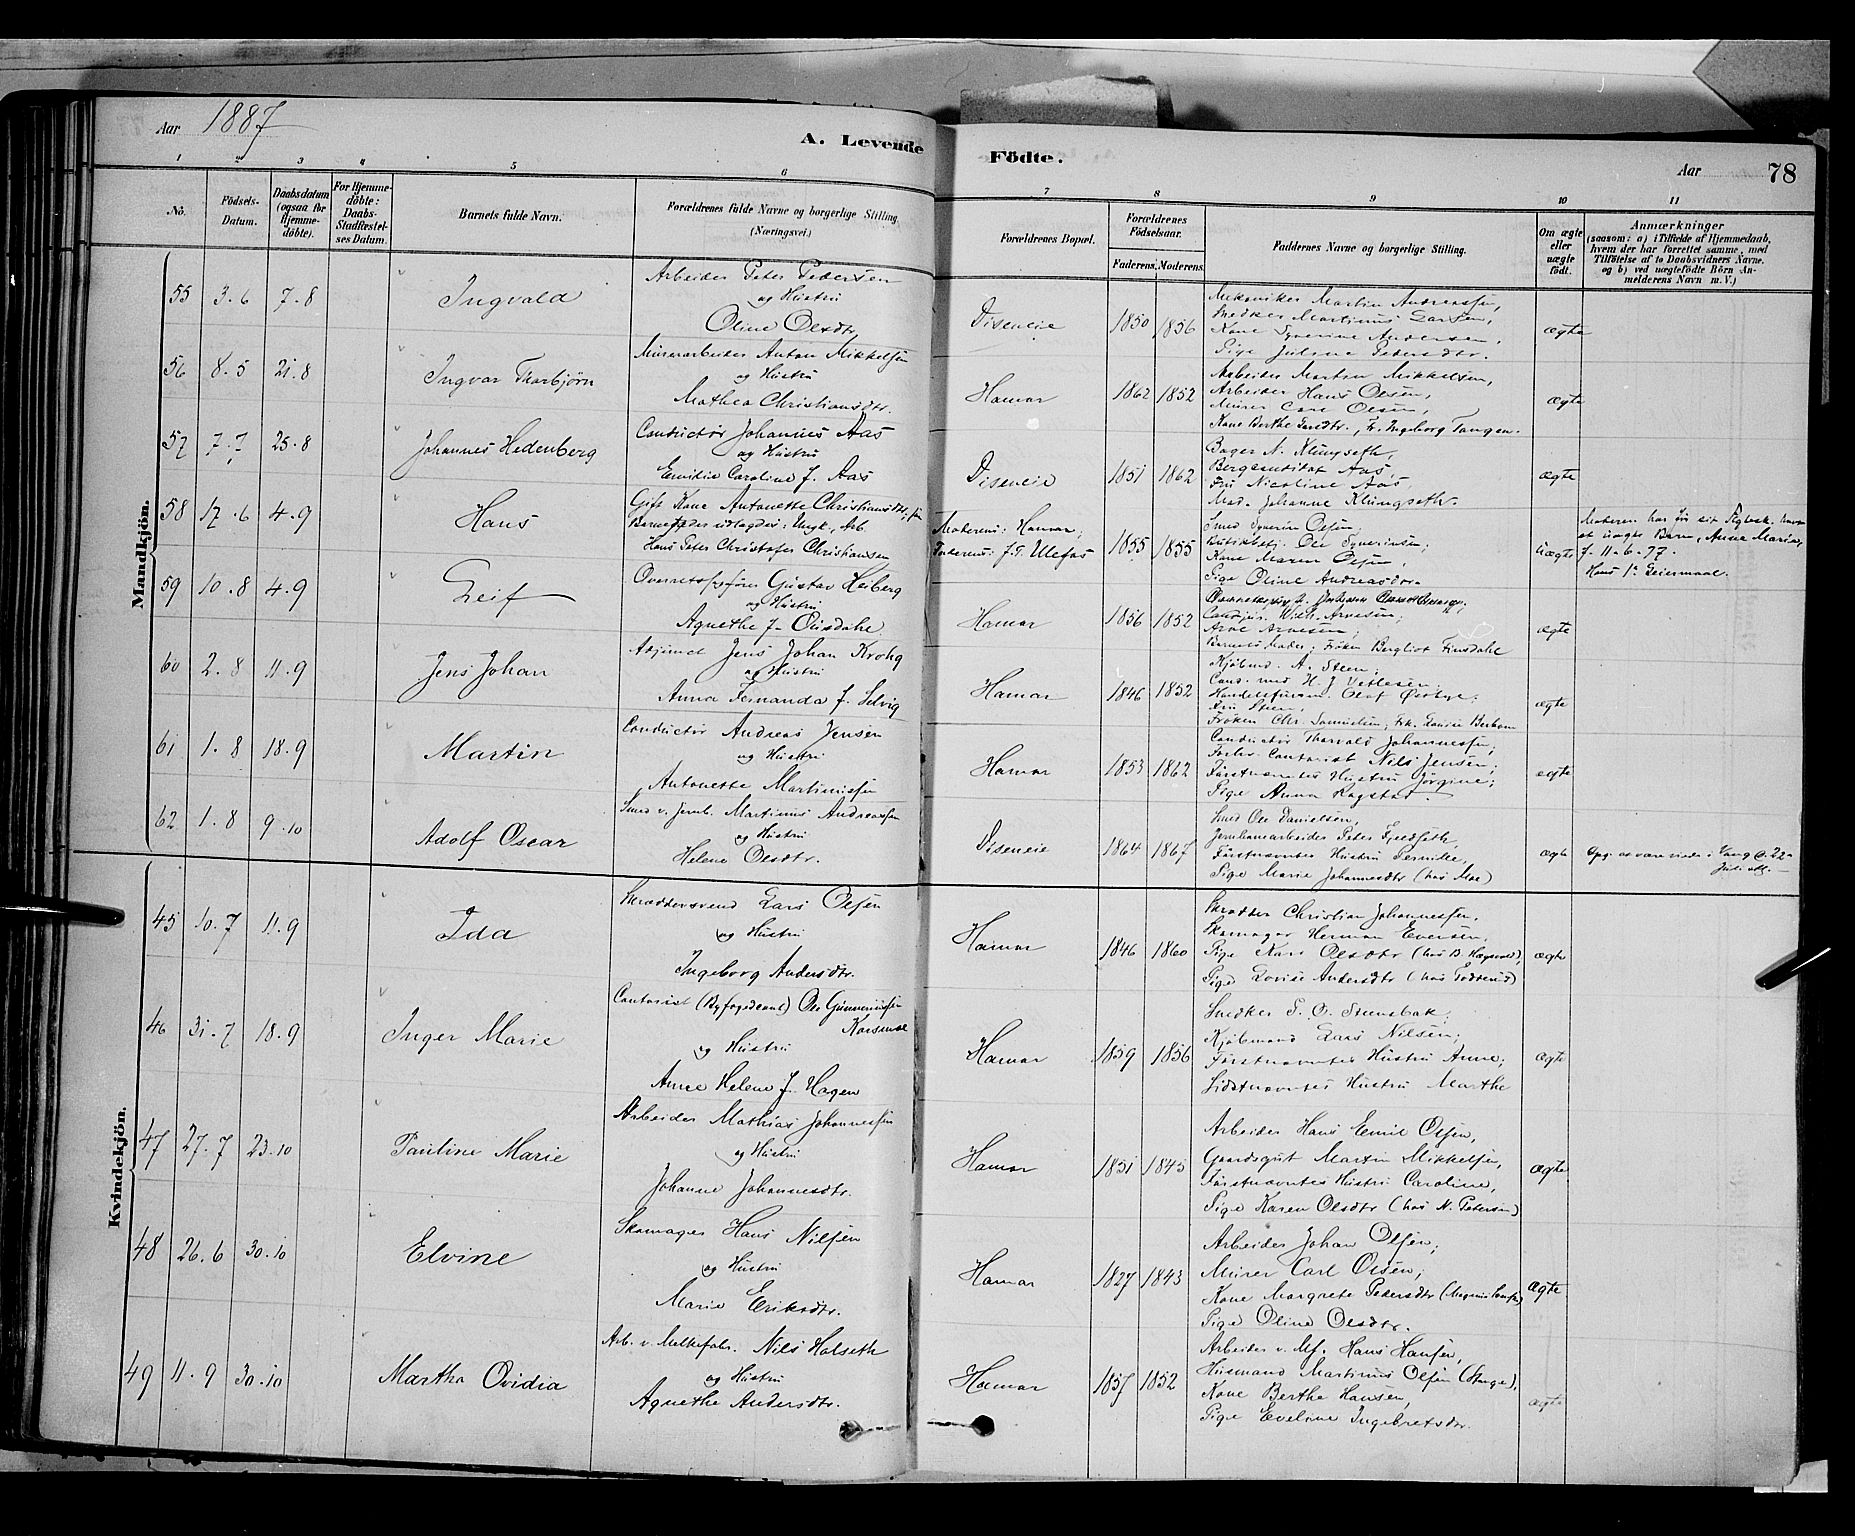 Aar 1887
A. Levende Födte.
Aar 78
1 2 3 4 5 6 7 8 9 10 11
No.
Födsels-Datum.
Daabsdatum (ogsaa for Hjemme-döbte).
For Hjemme-döbte: Daabs-Stadfæstel-ses Datum.
Barnets fulde Navn.
Forældrenes fulde Navne og borgerlige Stilling. (Næringsvei.)
Forældrenes Bopæl.
Forældrenes Födselsaar.
Faderens. Moderens.
Faddernes Navne og borgerlige Stilling.
Om ægte eller uægte födt.
Anmærkninger
(saasom: a) i Tilfælde af Hjemmedaab, hvem der har forrettet samme, med Tilföielse af to Daabsvidners Navne. og b) ved uægtefödte Börn An-melderens Navn m. V.)
Mandkjön.
55 3.6 7.8 Ingvald
Arbeider Peter Pedersen
og Hustru
Oline Olsdtr.
Diseneie 1850 1856
Mekaniker Martin Andreassen,
Snedker Martinus Larsen,
Kone Syverine Andersen,
Pige Juline Pedersdtr.
ægte
56 8.5 21.8 Ingvar Thorbjörn
Murerarbeider Anton Mikkelsen
og Hustru
Mathea Christiansdtr.
Hamar 1862 1852
Arbeider Martin Mikkelsen,
Arbeider Hans Olsen,
Murer Carl Olsen,
Kone Berthe Larsdtr., Fr. Ingeborg Tangen.
ægte
57 7.7 25.8 Johannes Hedenberg
Conductör Johannes Aas
og Hustru
Emilie Caroline f. Aas
Diseneie 1851 1862
Bager N. Klungseth,
Bergcandidat Aas,
Fru Nicoline Aas,
Mad. Johanne Klungseth.
ægte
58 17.6 4.9 Hans
Gift Kone Antonette Christiansdtr.;
Barnefader udlagdes: Ungk., Arb.
Hans Peter Christofer Christiansen
Moderens: Hamar;
Faderens: f. T. Ulefos
1855 1855
Smed Syverin Olsen,
Ole Syverinsen;
Kone Maren Olsen,
Pige Oline Andreasdtr.
uægte
Moderen har för sit Ægtesk. havt
et uægte Barn, Anna Marie,
f. 11-6-77.
Hans 1ste Leiermaal.
59 10.8 4.9 Leif
Overretssagförer Gustav Heiberg
og Hustru
Agnethe f.
Hamar 1856 1852
Arnesen;
Arne Arnesen;
Barnets Moder; Fröken Bergliot Finsdahl
ægte
60 2.8 11.9 Jens Johan
Adjunct Jens Johan Krohg
og Hustru
Anna Fernanda f. Selvig
Hamar 1846 1852
Kjöbmd. A. Steen;
Cand. med H. J. Vetlesen;
Olaf Östbye;
Fru Steen,
Fröken Chr. Samuelsen; Frk.
ægte
61 1.8 18.9 Martin
Conductör Andreas Jensen
og Hustru
Antonette Martinussen
Hamar 1853 1862
Conductör Thorvald Johannessen;
Contorist Nils Jensen;
Förstnævntes Hustru Jörgine;
Pige Anna Ragstad.
ægte
62 1.8 9.10 Adolf Oscar
Smed v. Jernb. Martinus Andreassen
og Hustru
Helene Olsdtr.
Diseneie 1864 1867
Smed Ole Danielsen,
Jernbanearbeider Peter Fjeldseth,
Förstnævntes Hustru Pernille,
Pige Marie Johannesdtr (hos Moe)
ægte
Opg. at være viede i Vang d. 22de
Juli
Kvindekjön.
45 10.7 11.9 Ida
Skræddersvend Lars Olsen
og Hustru
Ingeborg Andersdtr.
Hamar 1846 1860
Skrædder Christian Johannessen,
Skomager Herman Evensen,
Pige Kari Olsdtr
Pige Lovise Andersdtr
ægte
46 31.7 18.9 Inger Marie
Contorist (Byfogedcont) Ole Gunneriussen
og Hustru
Anne Helene f. Hagen
Hamar 1859 1856
Snedker S. O. Stensbak;
Kjöbmand Lars Nilsen;
Förstnævntes Hustru Anne;
Sidstnævntes Hustru Marthe
ægte
47 27.7 23.10 Pauline Marie
Arbeider Mathias Johannessen
og Hustru
Johanne Johannesdtr.
Hamar 1851 1845
Arbeider Hans Emil Olsen,
Gaardsgut Martin Mikkelsen,
Förstnævntes Hustru Caroline,
Pige Karen Olsdtr (hos N. Petersen)
ægte
48 26.6 30.10 Elvine
Skomager Hans Nilsen
og Hustru
Marie Eriksdtr.
Hamar 1827 1843
Arbeider Johan Olsen;
Murer Carl Olsen;
Kone Margrete Pedersdtr
Pige Oline Olsdtr.
ægte
49 11.9 30.10 Martha Ovidia
Arb. v. Melkefabr. Nils Holseth
og Hustru
Agnethe Andersdtr.
Hamar 1857 1852
Arbeider v. Mf. Hans Hansen,
Husmand Martinus Olsen (Stange),
Kone Berthe Hansen,
Pige Eveline Ingebretsdtr.
ægte